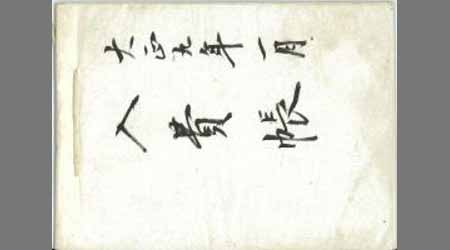 大正九年一月
入費帳